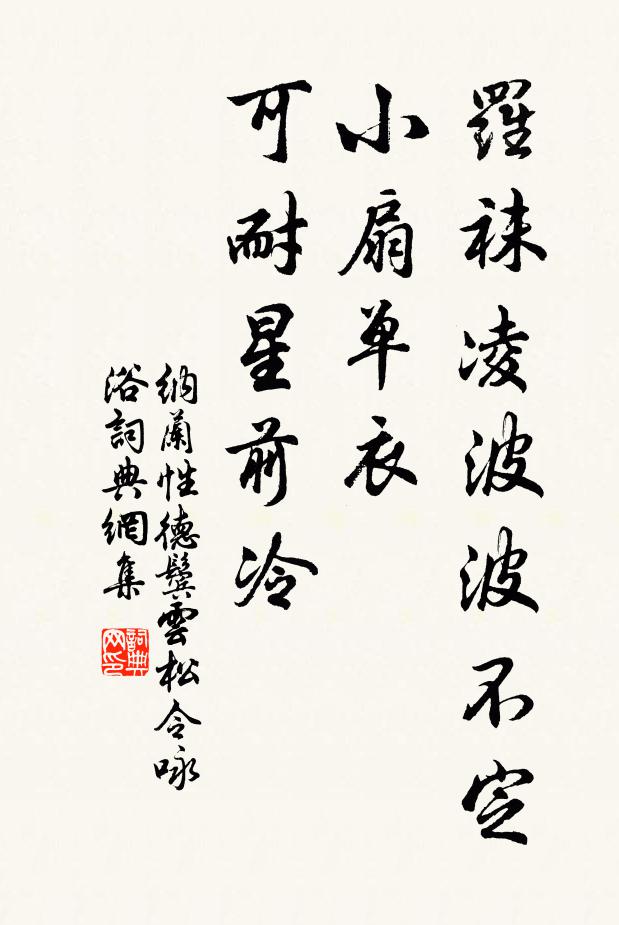 羅袜凌波波不定
小扇单衣
可耐星前冷
納蘭性德鬓雲松令咏
浴詞典網集
詞典网印